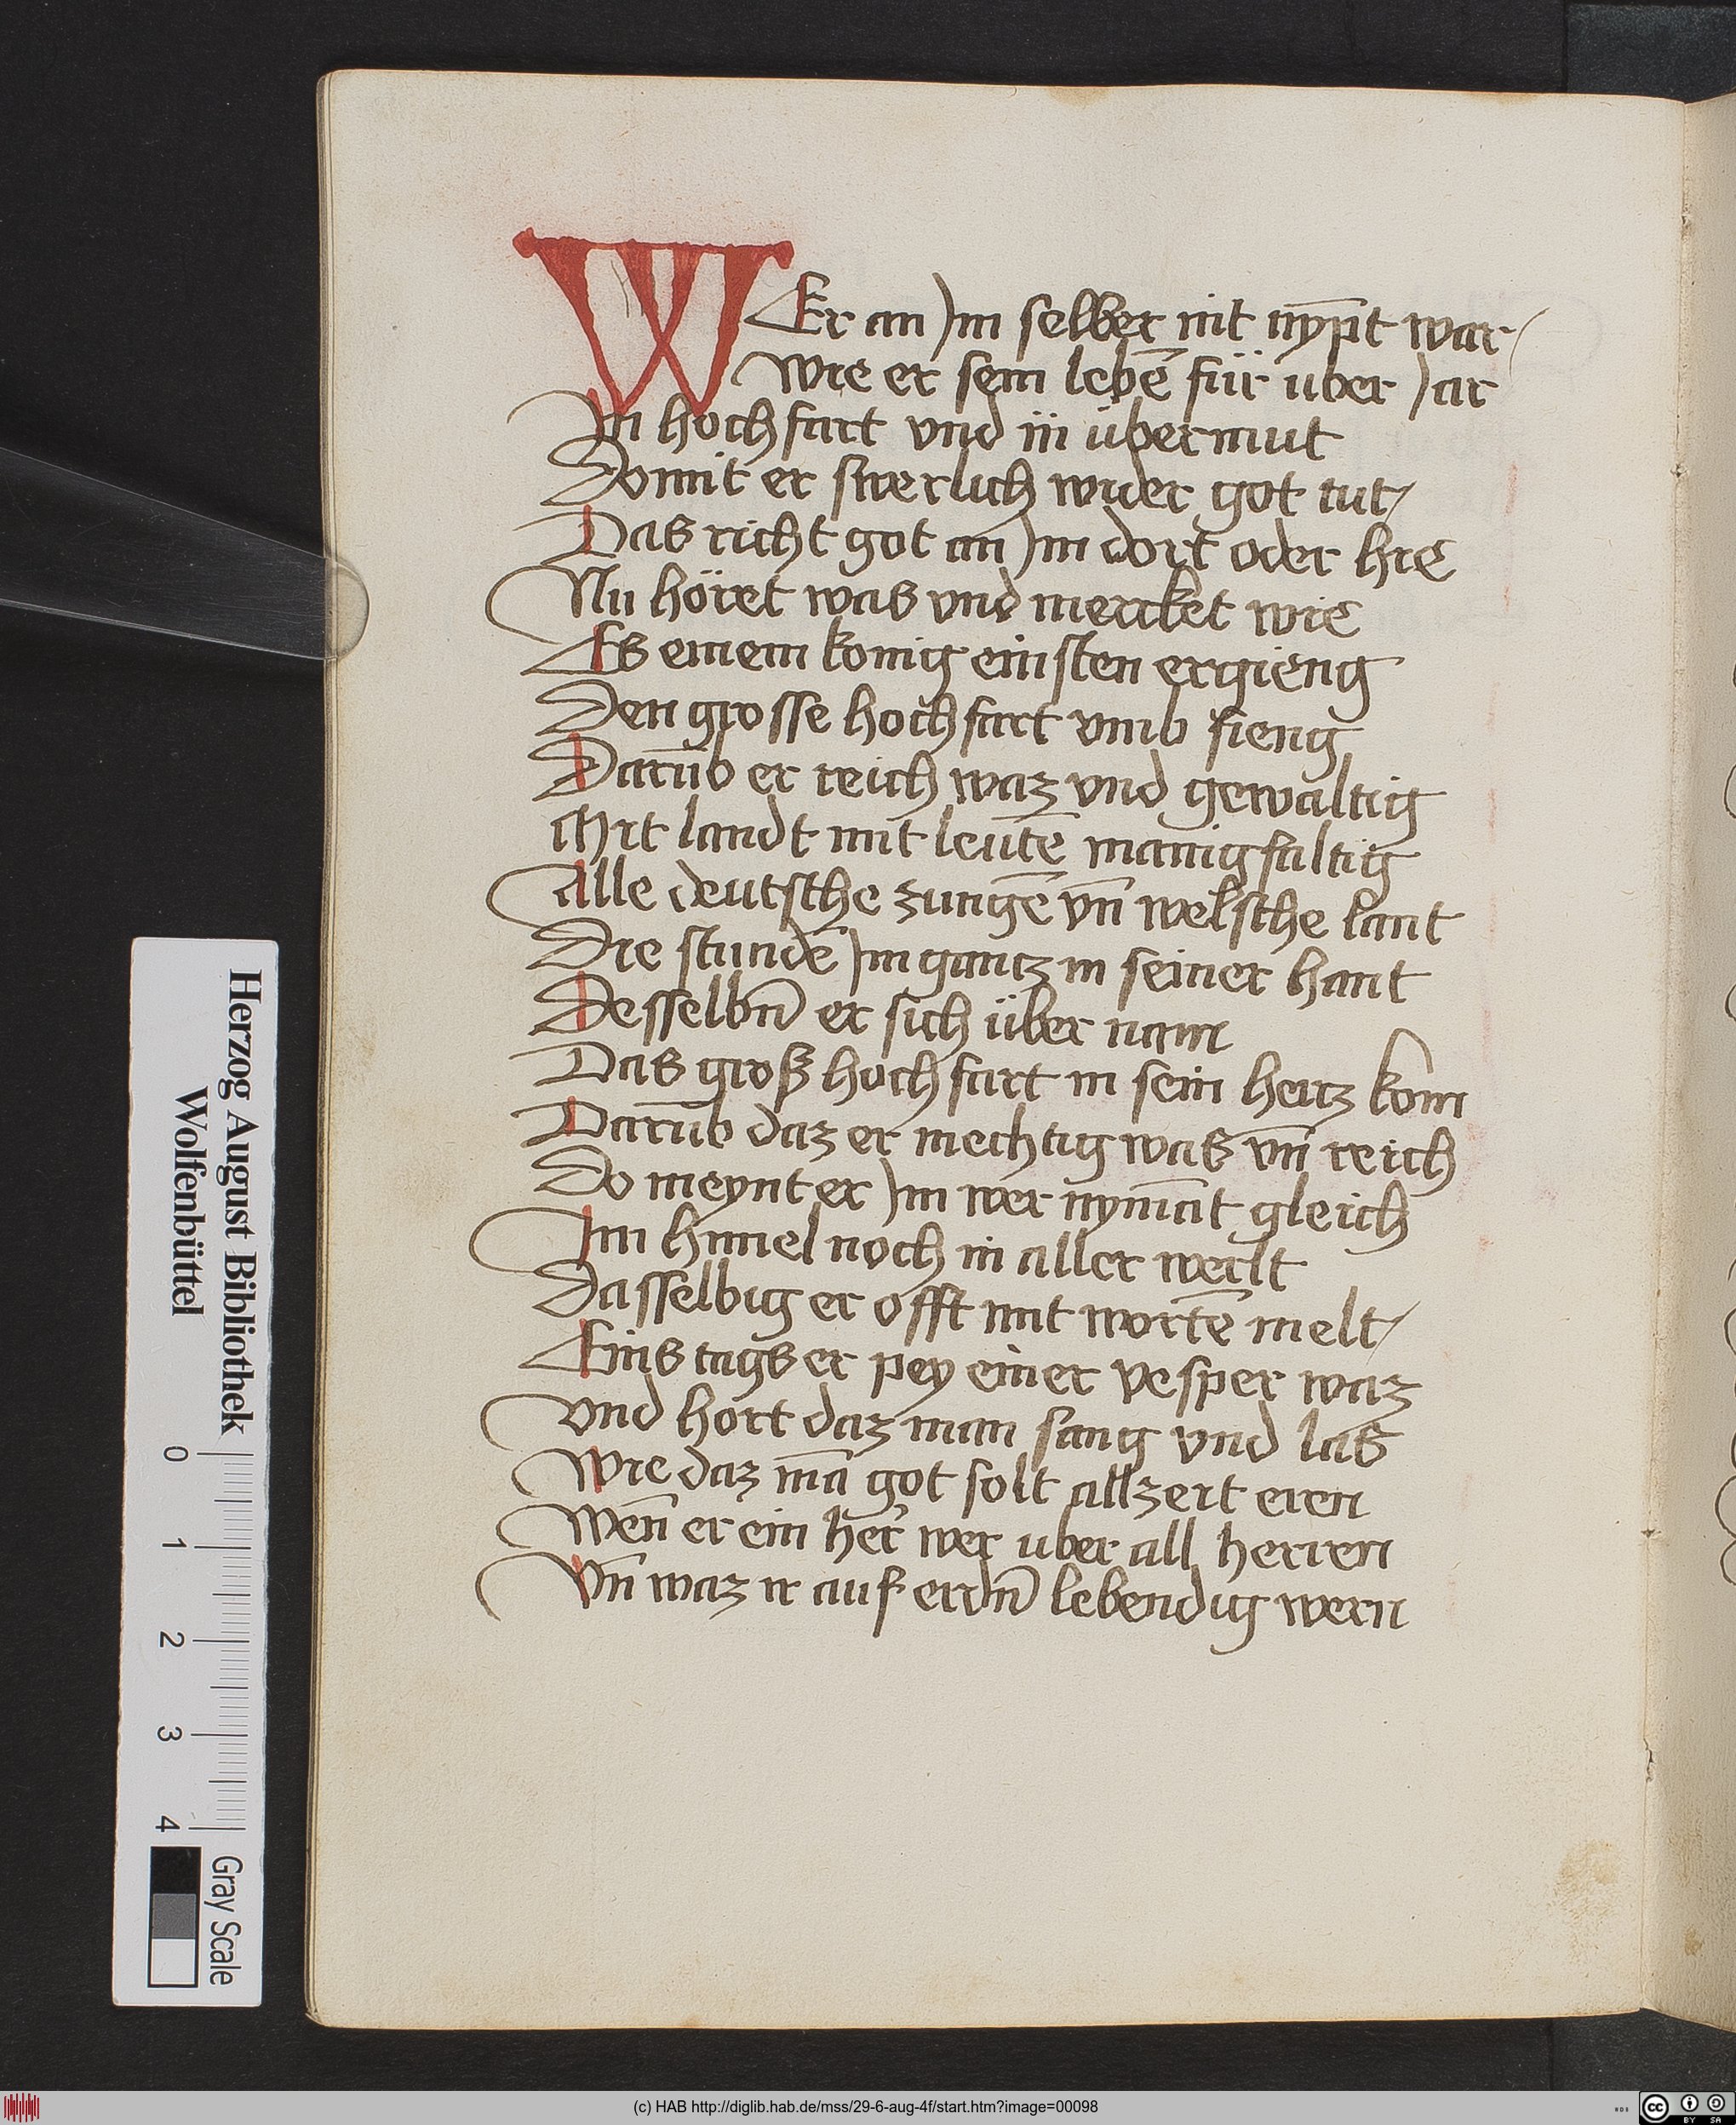 WEr an Jm selber nit nym̄pt war
Wie er sein lebē für uber Jar
Jn hochfart vnd in übermut
Domit er swerlich wider got tut
Das richt got an Jm dort oder hie
Nu höret was vnd mercket wie
Es einem konig einsten ergieng
Den grosse hochfart vmb fieng
Darūb er reich waz vnd gewaltig
Mit landt mit leutē manigfaltig
Alle deutsche zungē vn̄ welsche lant
Die stundē Jm gantz in seiner hant
Desselbn̄ er sich über nam
Das groß hochfart in sein hertz kom
Darūb daz er mechtig was vn̄ reich
Do meynt er Jm wer nym̄āt gleich
Jm himel noch in aller werlt
Dasselbig er offt mit wortē melt
Eins tags er pey einer vesper waz
Vnd hort daz man sang vnd las
Wie daz mā got solt allzeit eren
Wen̄ er ein her wer uber all herren
Vn̄ waz ir auf erdn̄ lebendig wern
Herzog August Bibliothek
Wolfenbüttel
0 1 2 3 4
Gray Scale
(c) HAB http://diglib.hab.de/mss/29-6-aug-4f/start.htm?image=00098
CC BY SA